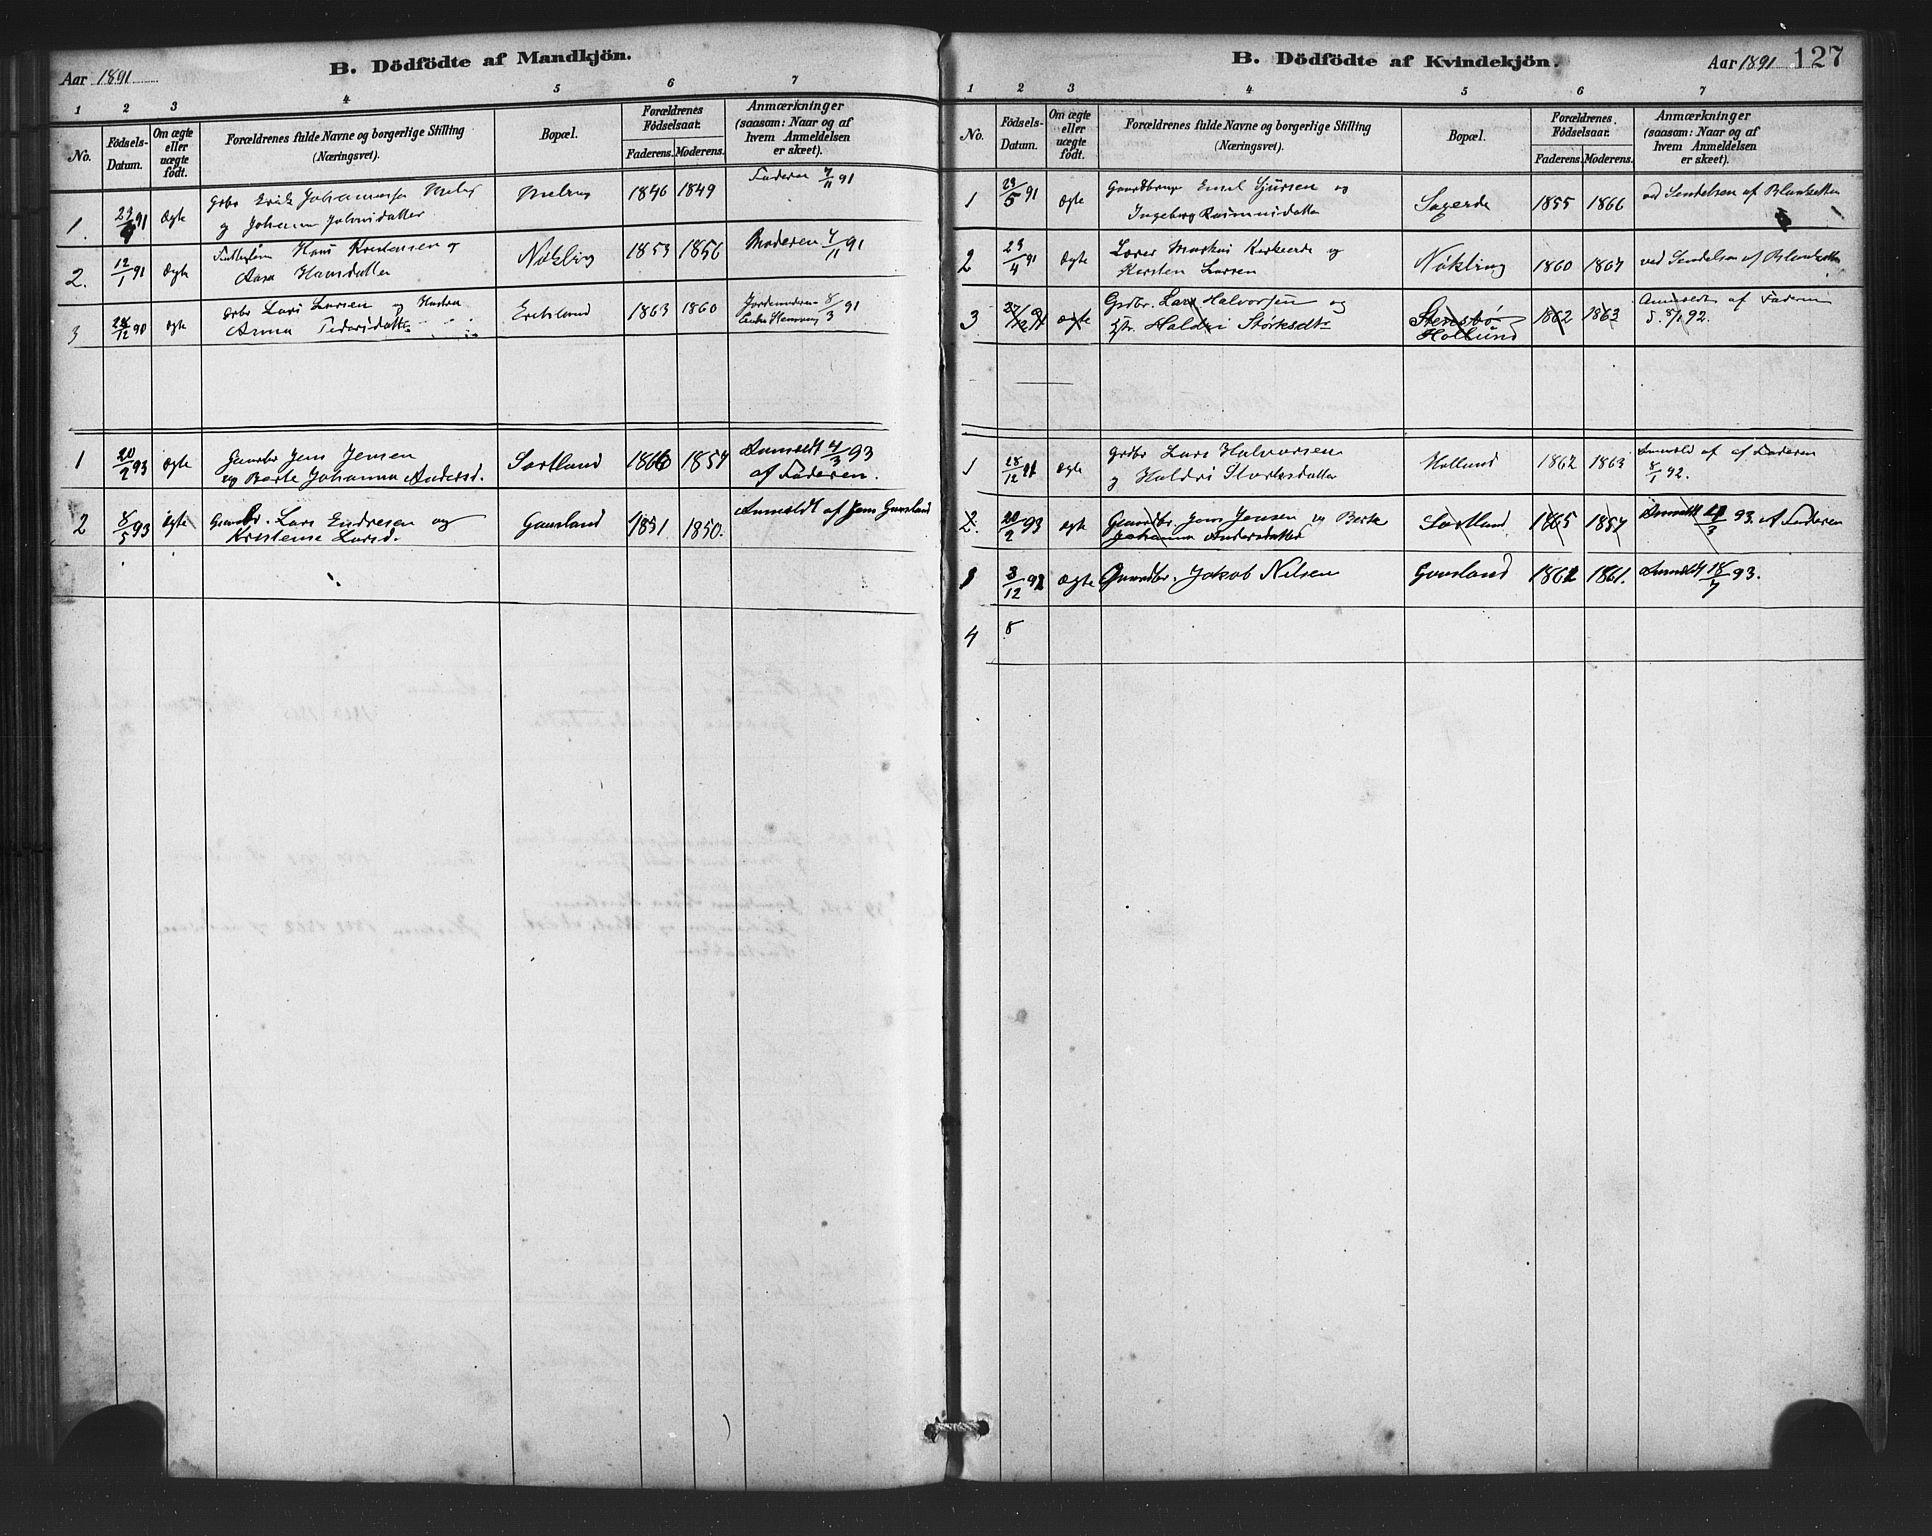 Aar 1891
B. Dödfödte af Mandkjön.
1 2 3 4 5 6 7
No.
Födsels-Datum.
Om ægte eller uægte födt.
Forældrenes fulde Navne og borgerlige Stilling
(Næringsvei).
Bopæl.
Forældrenes Födselsaar.
Faderens. Moderens.
Anmærkninger
(saasom: Naar og af
hvem Anmeldelsen
er skeet).
1. 23/ 91 Ægte Gbr. Erik Johannessen
og Johanna 1846 1849 Faderen 7/11 91
2. 12/1 91 Ægte Hans Kristensen og
Hansdatter Nökling 1853 1856 Moderen 7/11 91
3 28/12 90 ægte Gbr. Lars Larsen og Hustru
Anna Pedersdatter Eriksland 1863 1860 Jordemoderen 8/3 91
1 20/2 93 ægte Gaardbr Jens Jensen
og Berte Johanna Andersd. Sortland 1866 1857 Anmeldt 4/3 93
af Faderen.
2 8/5 93 ægte Gaardbr. Lars Endresen og
Kristense Larsd. Gaasland 1851 1850. Anmeldt af Jens Gaasland
B. Dödfödte af Kvindekjön.
Aar 1891 127
1 2 3 4 5 6 7
No.
Födsels-Datum.
Om ægte eller uægte födt.
Forældrenes fulde Navne og borgerlige Stilling
(Næringsvei).
Bopæl.
Forældrenes Födselsaar.
Faderens. Moderens.
Anmærkninger
(saasom: Naar og af
hvem Anmeldelsen
er skeet).
1 29/5 91 Ægte Gaardbruger Emil Sjursen og
Ingeborg Rasmusdatter 1855 1866 ved Sendelsen af Blanketten
2 23/4 91 Ægte Lærer Markus og
Kirsten Larsen Nökling 1860 1867 ved Sendelsen af Blanketten
3 27/12 91 ægte Grdbr. Lars Halvorsen og
Haldri Störksdtr Stensbö
Hollund 1862 1863 Anmeldt af Faderen
d. 8/1 92.
1 28/12 91 ægte Grdbr Lars Halvorsen
og Haldri Storksdatter Hollund 1862 1863 Anmeld af af Faderen
8/1 92.
2. 20/2 93 ægte Gaardbr. Jens Jensen og Berte
Johanna Andersdatter Sortland 1865 1857 Anmeldt 4/3 93. af Faderen
3 3/12 92 ægte Gaardbr. Jakob Nilsen Gaasland 1862 1861. Anmeldt 18/7 93.
4 8